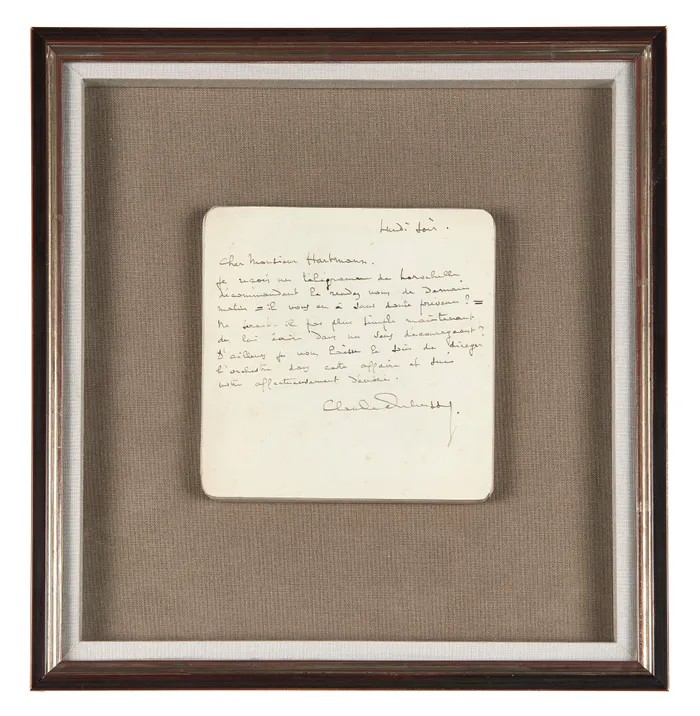 Lundi soir.
Cher Monsieur Hartmann.
Je reçois un télégramme de Larochelle
décommandant le rendez vous de demain
matin = il vous en a sans doute prévenu? =
Ne serait-il pas plus simple maintenant
de lui écrire dans un sens décourageant?
D'ailleurs je vous laisse le soin de diriger
l'orchestre dans cette affaire et suis
votre affectueusement dévoué.
Claude Debussy.